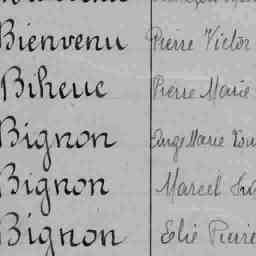 Bienvenu Pierre Victor
Biheuc Pierre Marie
Bignon Ange Marie
Bignon Marcel
Bignon Elie Pierre